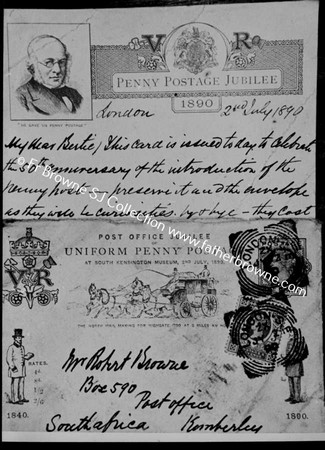 V R
PENNY POSTAGE JUBILEE
1890
"HE GAVE US PENNY POSTAGE."
London 2nd July 1890
My dear Bertie, This card is issued to day to celebrate
the 50th anniversary of the introduction of the
penny post preserve it and the envelope
as they will be curiosities by & bye - they cost
© Fr Browne SJ Collection
www.fatherbrowne.com
POST OFFICE JUBILEE
UNIFORM PENNY POSTAGE
AT SOUTH KENSINGTON MUSEUM, 2ND JULY, 1890.
V R
RATES.
Mr Robert Browne
Box 590
Post office
South africa Kimberley
1840. 1890.